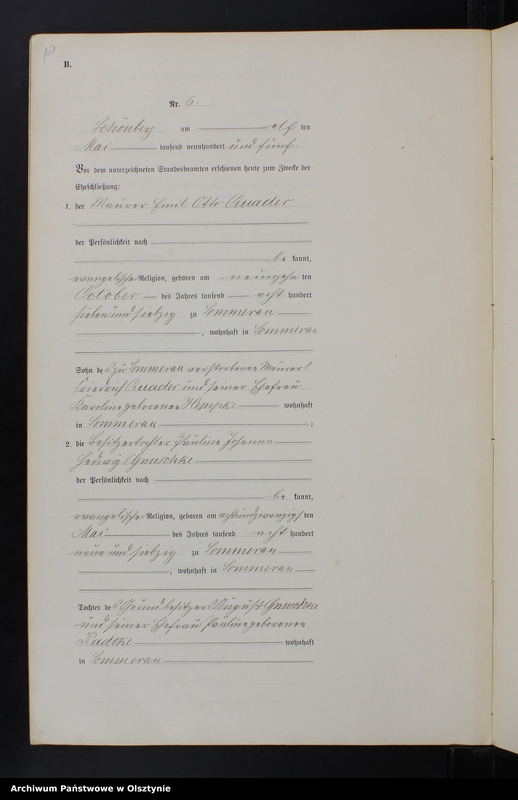 B.
Nr. 6.
Schönberg am elf ten
Mai tausend neunhundert und fünf.
Vor dem unterzeichneten Standesbeamten erschienen heute zum Zwecke der
Eheschließung:
1. der Maurer Emil Otto Quader
der Persönlichkeit nach
be kannt,
evangelischer Religion, geboren am neunzehn ten
October des Jahres tausend acht hundert
sieben und siebzig zu Sommerau
, wohnhaft in Sommerau
Sohn des zu Sommerau verstorbenen Maurers
Friedrich Quader und seiner Ehefrau
Karoline geborenen Hempke wohnhaft
in Sommerau ;
2. die Besitzertochter Pauline Johanna
Hedwig Gnuschke
der Persönlichkeit nach
be kannt,
evangelischer Religion, geboren am achtundzwanzigs ten
Mai des Jahres tausend acht hundert
neun und siebzig zu Sommerau
, wohnhaft in Sommerau
Tochter des Grundbesitzers August Gnuschke
und seiner Ehefrau Pauline geborenen
Radtke wohnhaft
in Sommerau
Archiwum Państwowe w Olsztynie